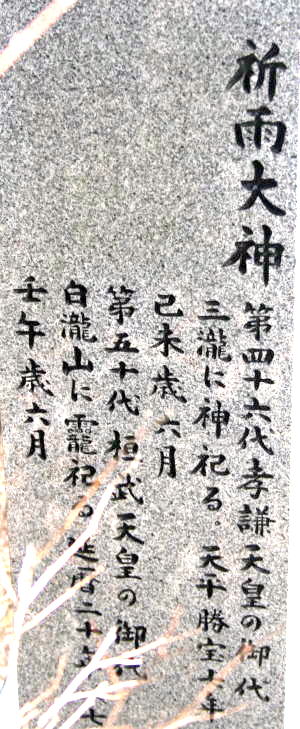 祈雨大神
第四十六代孝謙天皇の御代
三瀧に神祀る。天平勝宝七年
己未歳六月
第五十代桓武天皇の御代
白瀧山に龗祀る 延暦二十
壬午歳六月